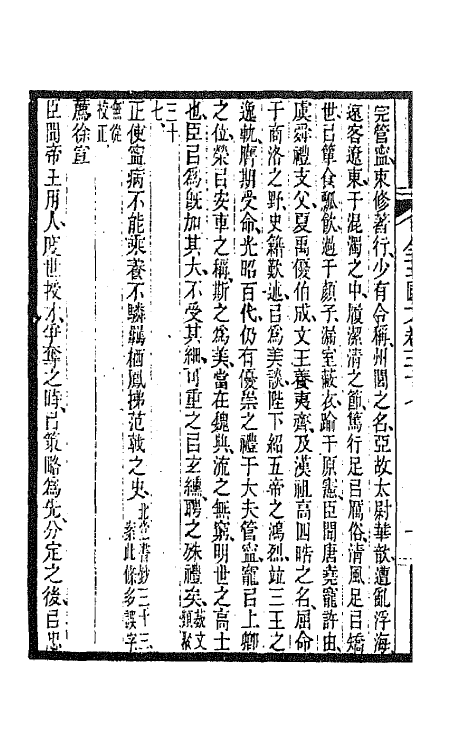 完管寧束修著行少有令稱州閭之名亞故太尉華歆遭亂浮海
遠客遼東于混濁之中履潔清之節篤行足㠯厲俗清風足㠯矯
世㠯簞食瓢飲過于顏子漏室蔽衣踰于原憲臣聞唐堯寵許由
虞舜禮支父夏禹優伯成文王養夷齊及漢祖高四皓之名屈命
于商洛之野史籍歎述㠯為美談陛下紹五帝之鴻烈竝三王之
逸軌膺期受命光昭百代仍有優崇之禮于大夫管寧寵㠯上卿
之位榮㠯安車之稱斯之為美當在魏典流之無窮明世之高士
也臣㠯為旣加其大不受其細可重之㠯玄纁聘之殊禮矣 藝文類聚
三十七
正使寧病不能乘養不驎羈栖鳳掃范戟之史 北堂書鈔三十三案此條多誤字
無從校正
薦徐宣
臣聞帝王用人度世授才爭奪之時㠯策略為先分定之後㠯忠
全三國文卷三十七